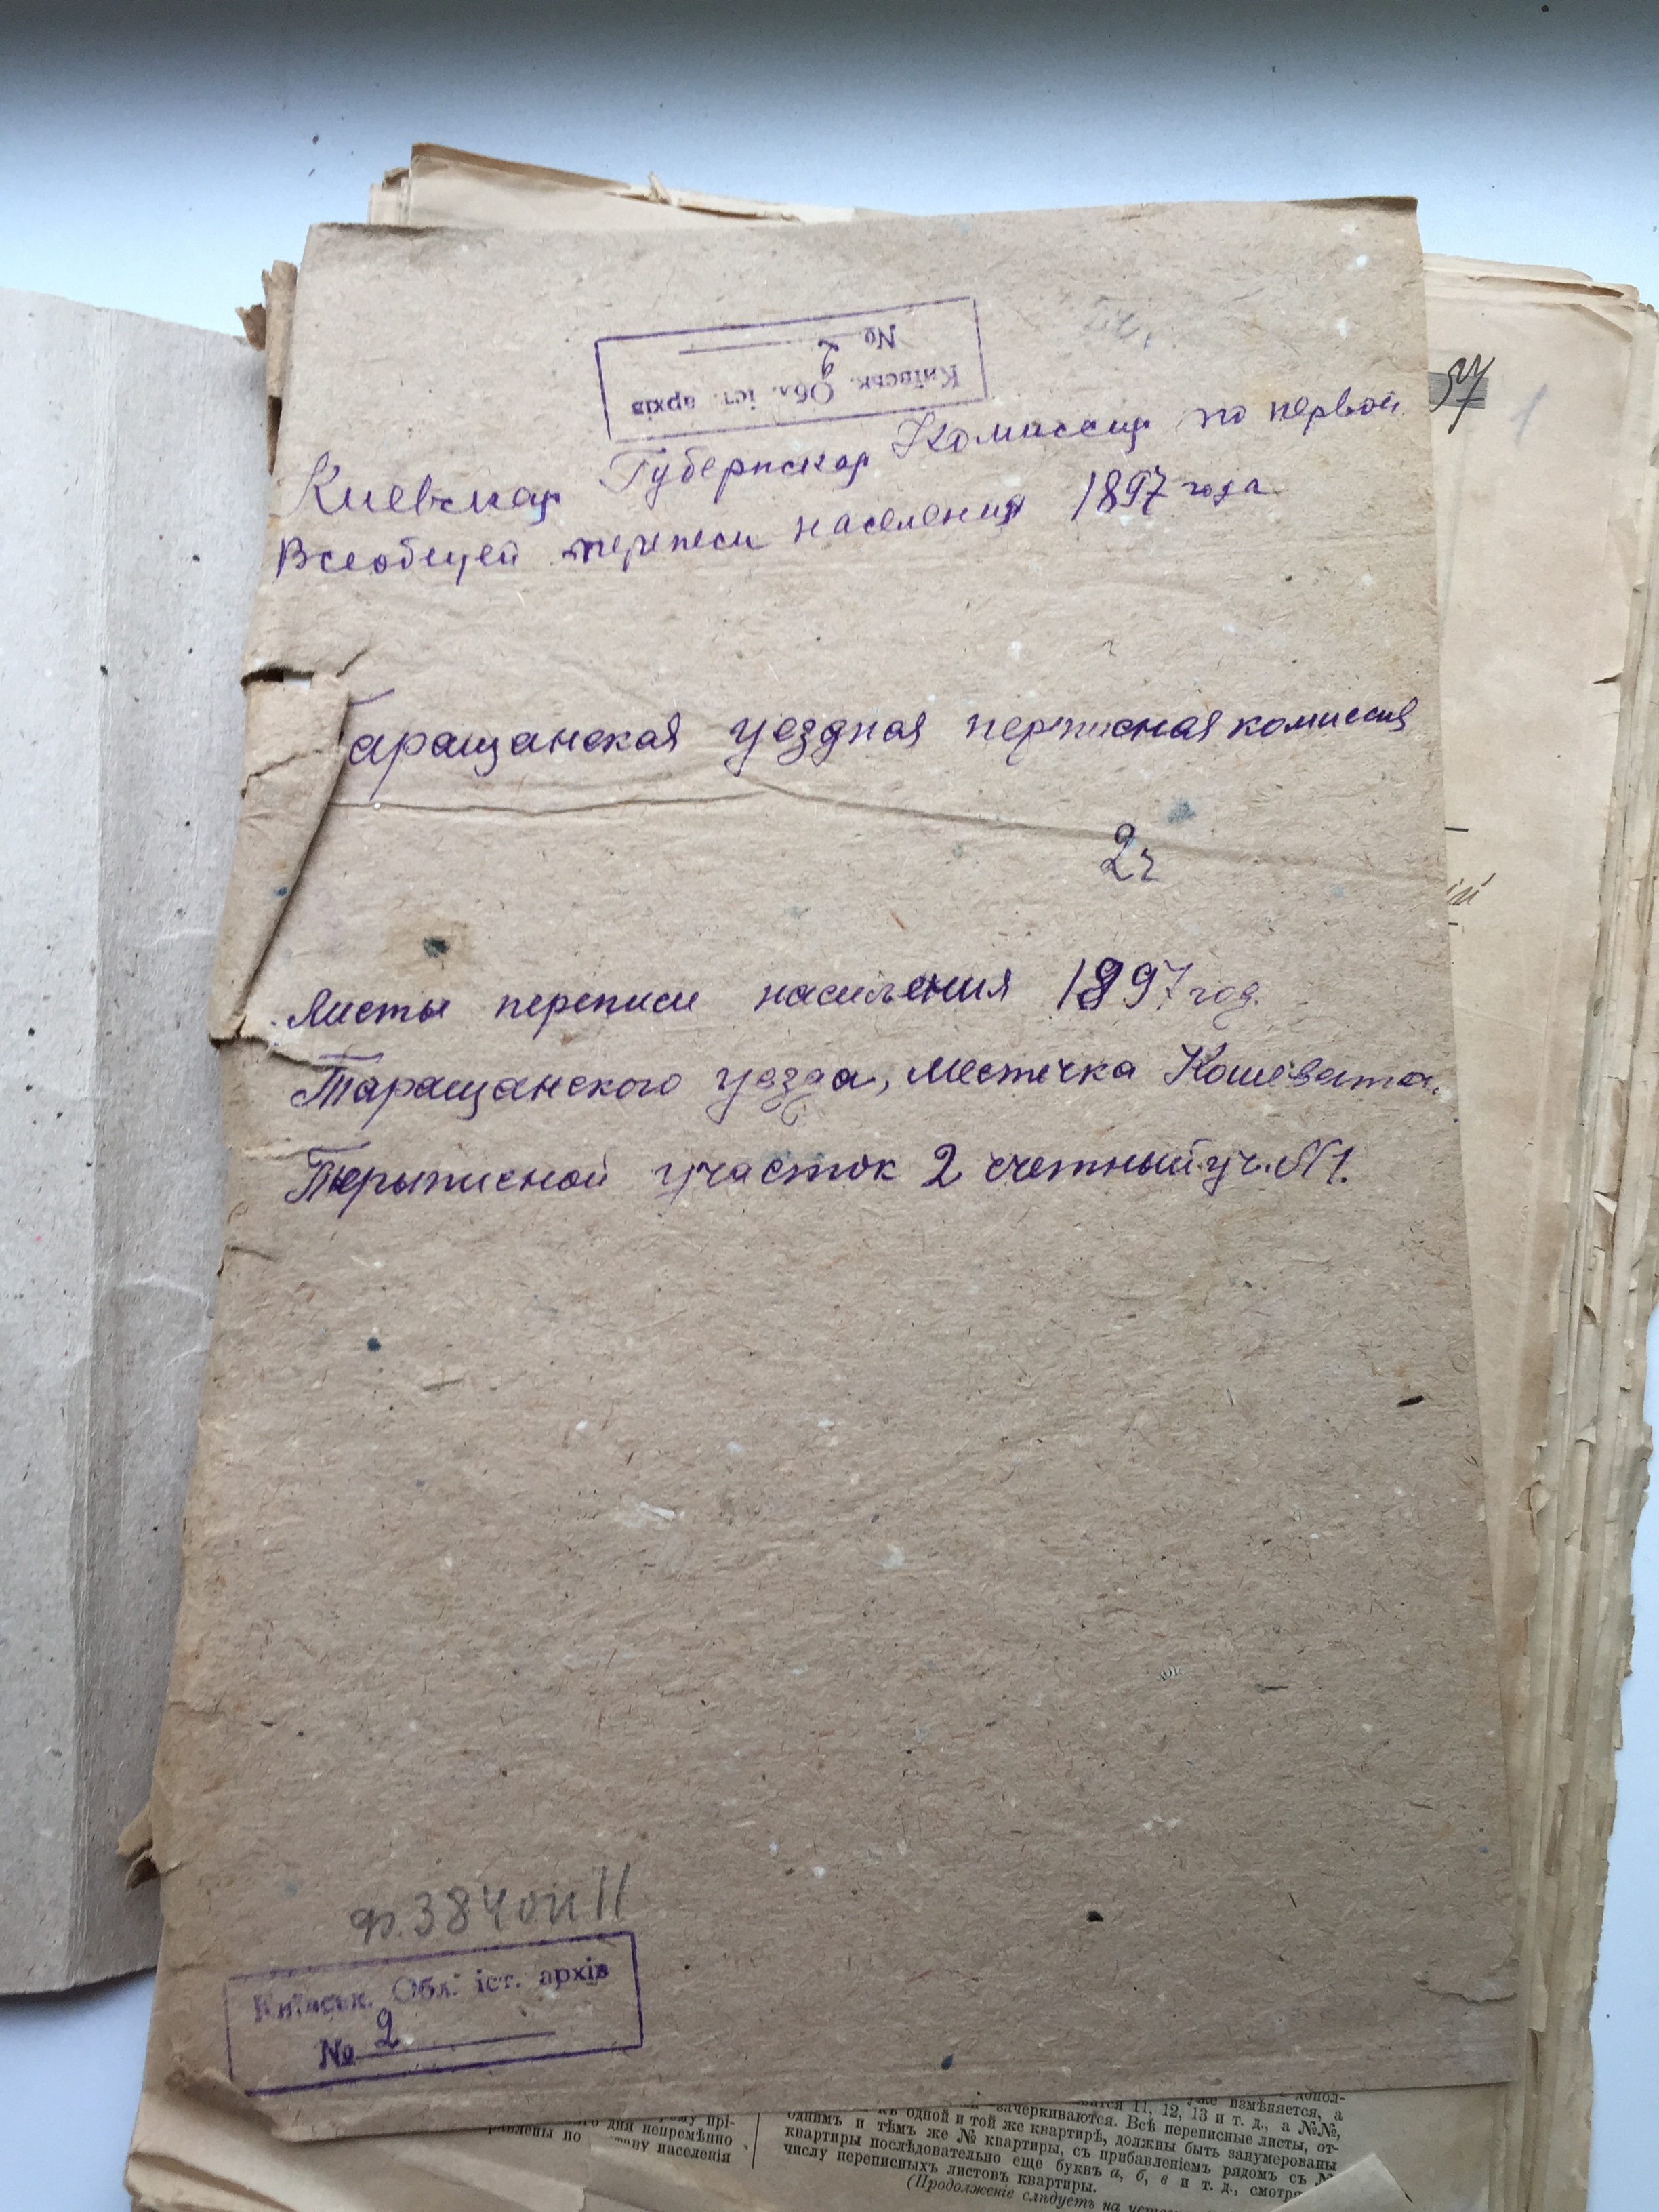 Київськ. Обл. іст. архів
№ 2
37
1
Киевская Губернская Комиссия по первой
Всеобщей переписи населения 1897 года
Таращанская уездная переписная комиссия
2ч
ій
Листы переписи населения 1897 год.
Таращанского уезда, местечка Кошевата.
Перыписной участок 2 счетный уч. №1.
ф. 384 оп 11
Київськ. Обл. іст. архів
№ 2
дня непремѣнно
населенія
уже измѣняется, а
зачеркиваются. Всѣ переписные листы, от-
одной и той же квартирѣ, должны быть занумерованы
однимъ и тѣмъ же № квартиры, съ прибавленіемъ рядомъ съ №
квартиры послѣдовательно еще буквъ а, б, в и т. д., смотря
числу переписныхъ листовъ квартиры.
(Продолженіе слѣдуетъ на